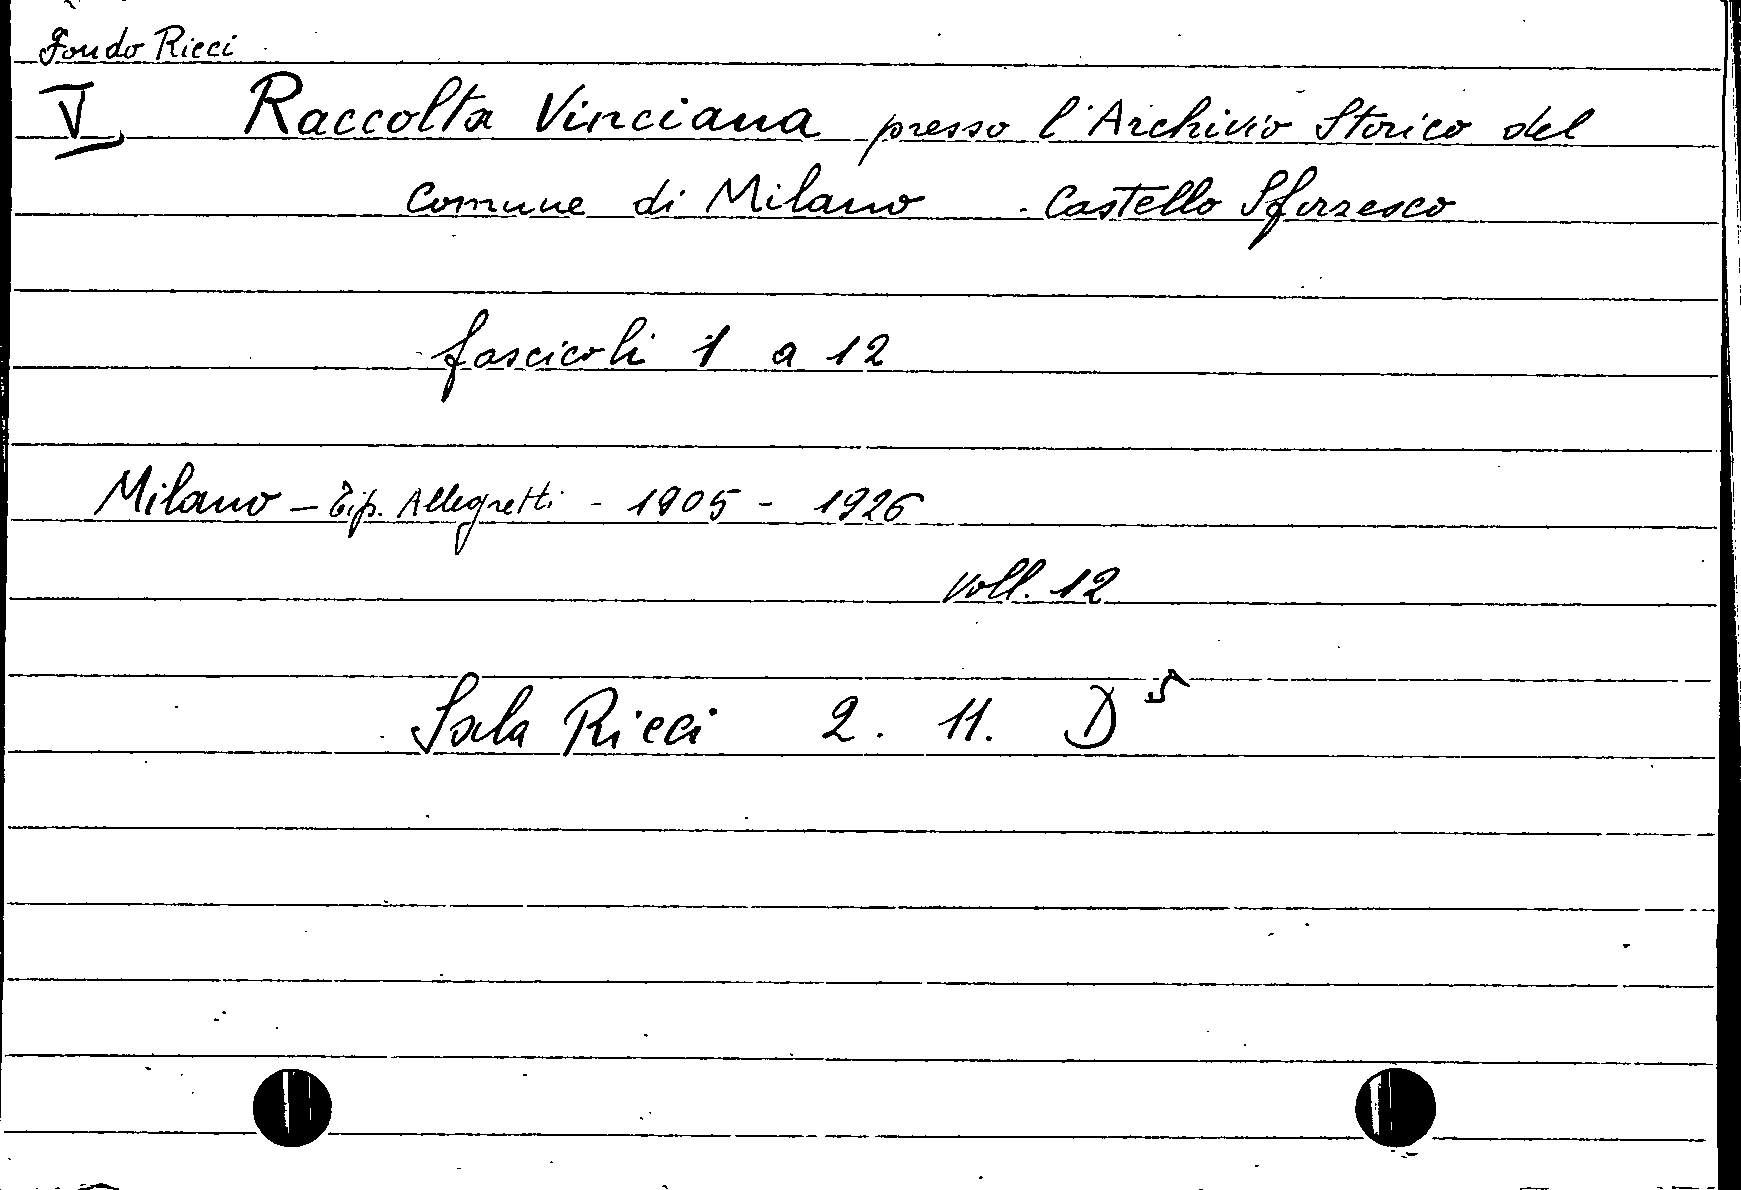 Fondo Ricci
V Raccolta Vinciana presso l'Archivio Storico del
Comune di Milano - Castello Sforzesco
fascicoli 1 a 12
Milano - Tip. Allegretti - 1905 - 1926
voll. 12
Sala Ricci 2. 11. D⁵